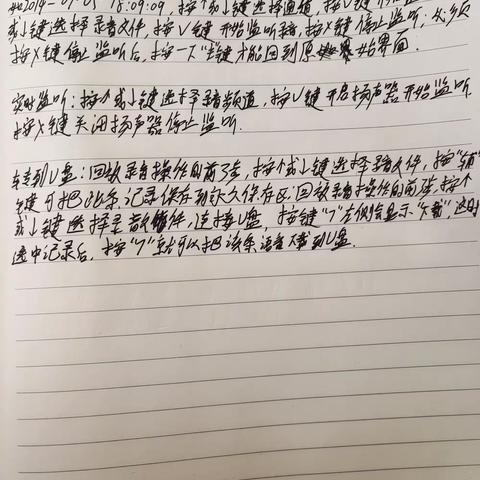 如2019-07-01 18:09:09, 按↑或↓键选择通道, 按√键
或↓键选择录音文件, 按√键开始监听, 按X键停止监听; 必须
按X键停止监听后, 按一下"键才能回到原始界面.
实时监听: 按↑或↓键选择录音频道, 按√键开启扬声器开始监听
按X键关闭扬声器停止监听.
转到U盘: 回放录音操作的前提, 按↑或↓键选择录音文件, 按"
键可把此条记录保存到永久保存区. 回放录音操作的前提, 按↑
或↓键选择录音文件, 连接U盘, 按键"√"左侧会显示"下载", 这时
选中记录后, 按"√"就可以把该条语音下载到U盘.